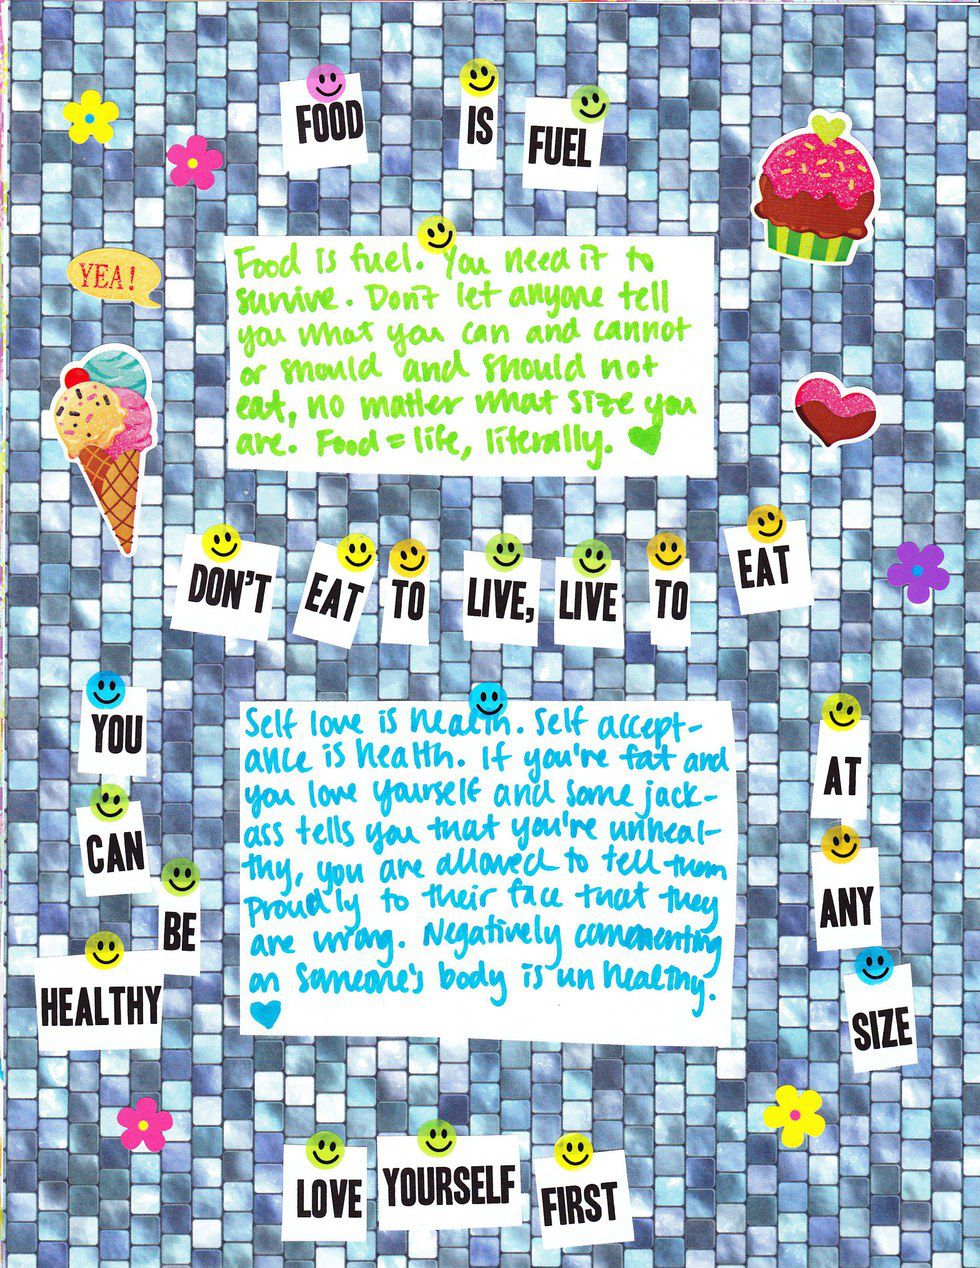 FOOD IS FUEL
YEA!
Food is fuel. You need it to
survive. Don't let anyone tell
you what you can and cannot
or should and should not
eat, no matter what size you
are. Food = life, literally.
DON'T EAT TO LIVE, LIVE TO EAT
YOU
CAN
BE
HEALTHY
Self love is health. Self accept-
ance is health. If you're fat and
you love yourself and some jack-
ass tells you that you're unheal-
thy, you are allowed to tell them
proudly to their face that they
are wrong. Negatively commenting
on someone's body is unhealthy.
AT
ANY
SIZE
LOVE YOURSELF FIRST